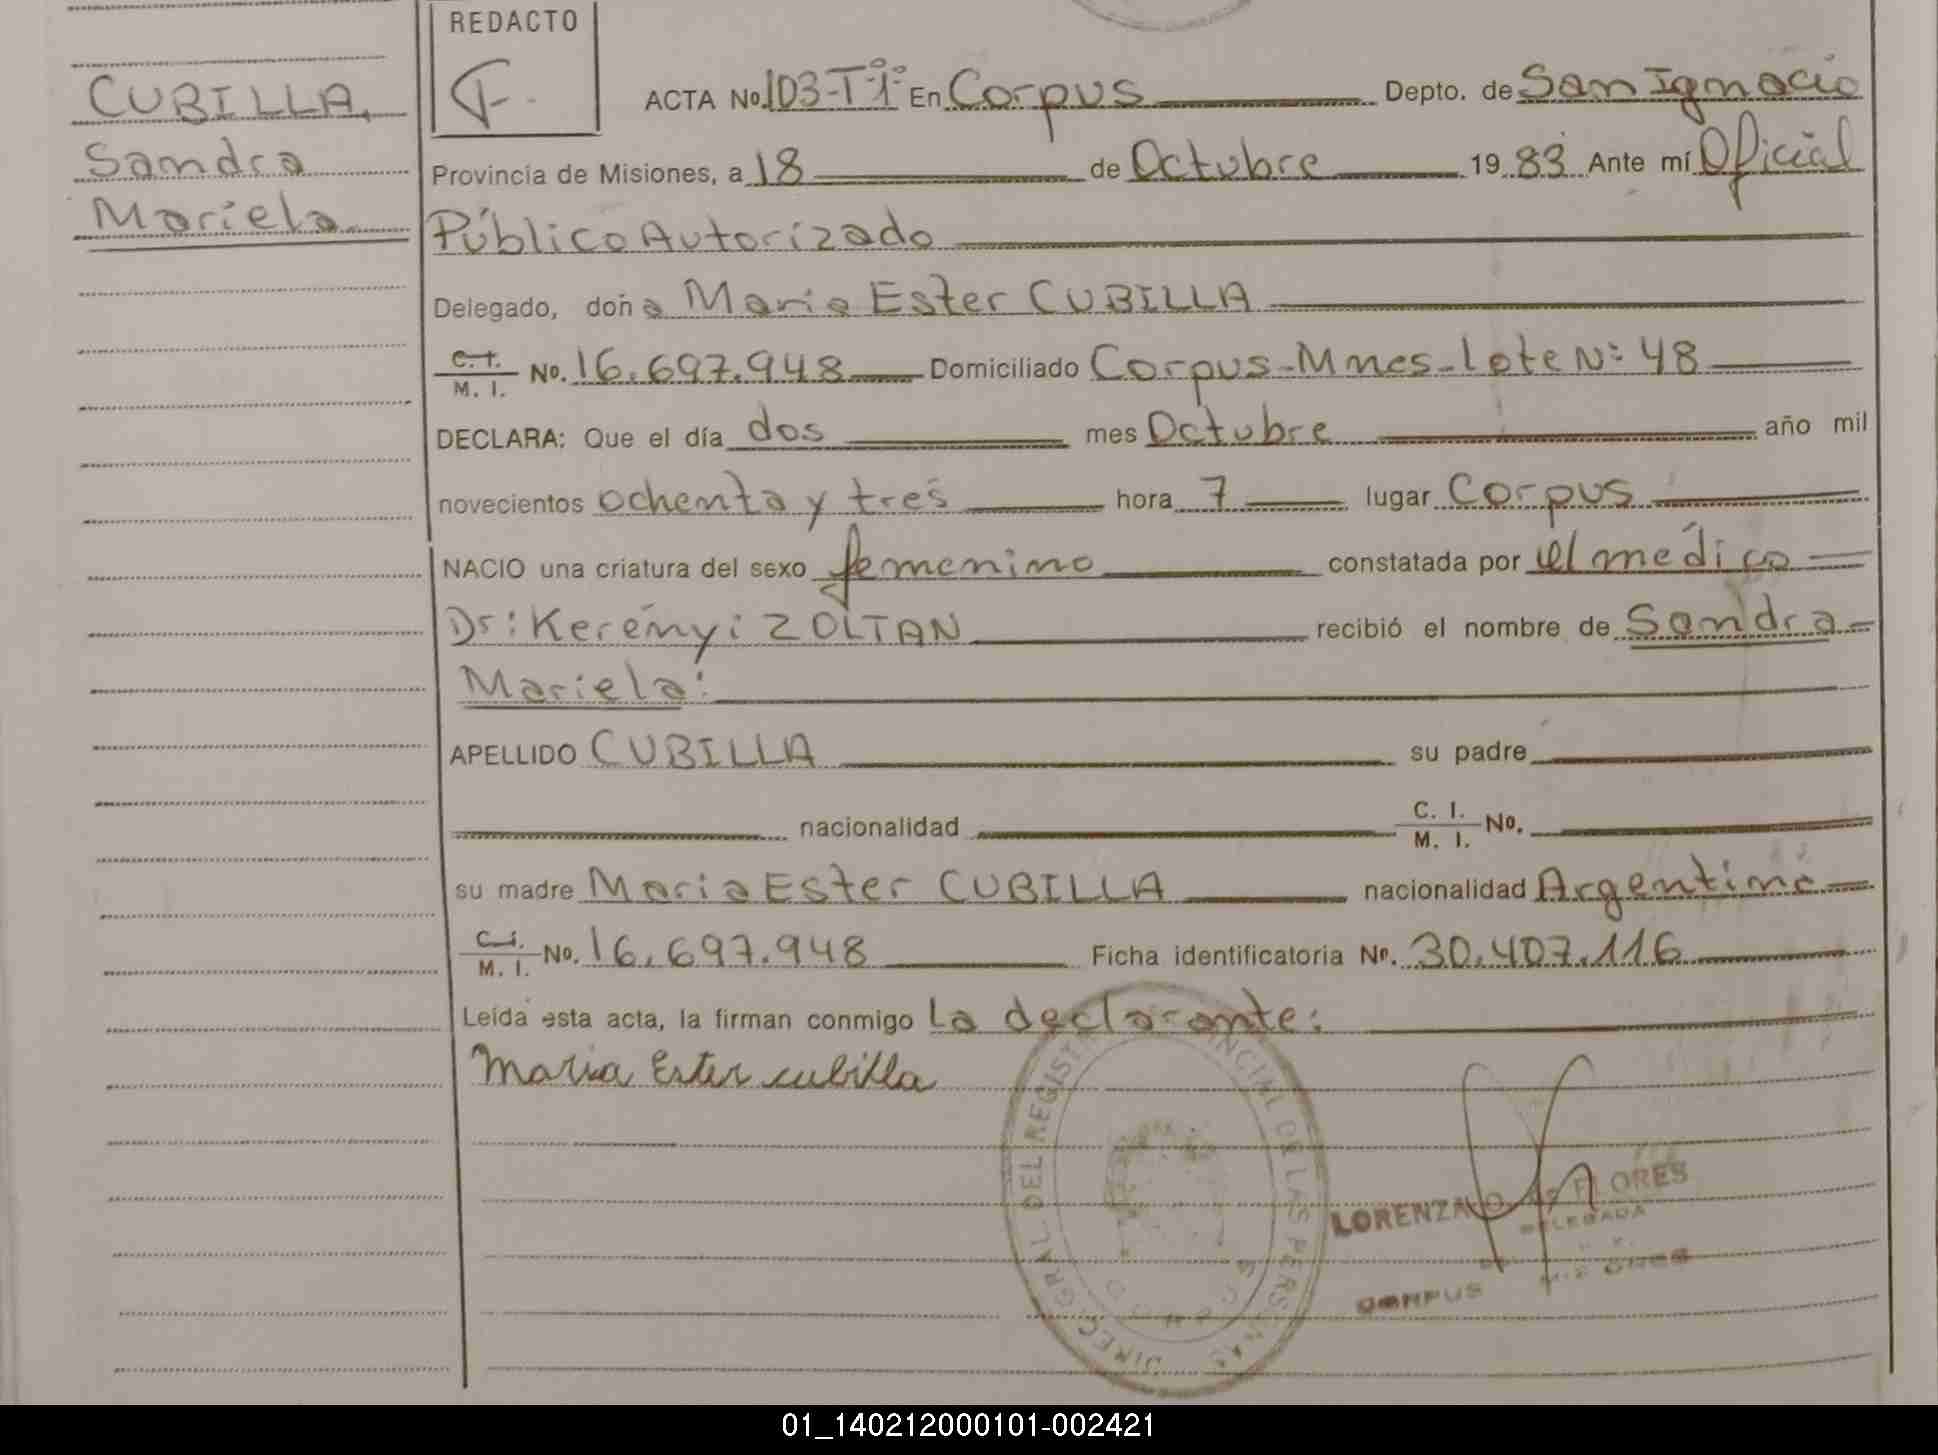 REDACTO
F.
CUBILLA,
Sandra
Mariela
ACTA No. 103-Tº1º En Corpus Depto. de San Ignacio
Provincia de Misiones, a 18 de Octubre 1983 Ante mí Oficial
Público Autorizado
Delegado, doña Maria Ester CUBILLA
C.I. / M. I. No. 16.697.948 Domiciliado Corpus-Mnes-Lote Nº 48
DECLARA: Que el día dos mes Octubre año mil
novecientos ochenta y tres hora 7 lugar Corpus
NACIO una criatura del sexo femenino constatada por el médico
Dr: Kerényi ZOLTAN recibió el nombre de Sandra
Mariela:
APELLIDO CUBILLA su padre
nacionalidad C. I. / M. I. No.
su madre Maria Ester CUBILLA nacionalidad Argentina
C.I. / M. I. No. 16.697.948 Ficha identificatoria No. 30.407.116
Leída esta acta, la firman conmigo la declarante:
Maria Ester cubilla
DIREC. GRAL DEL REGISTRO PROVINCIAL DE LAS PERSONAS
LORENZA FLORES
DELEGADA
CORPUS MISIONES
01_140212000101-002421